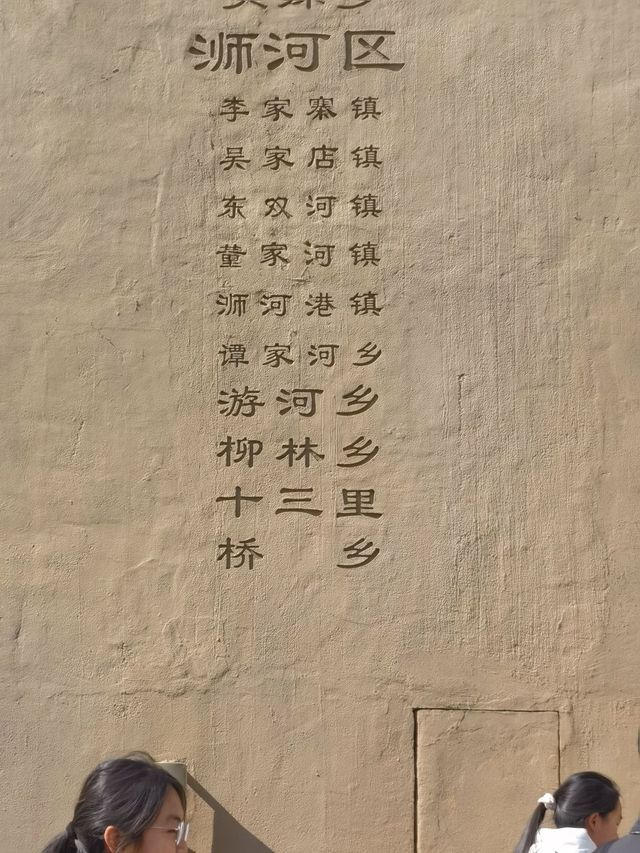 浉河区
李家寨镇
吴家店镇
东双河镇
董家河镇
浉河港镇
谭家河乡
游河乡
柳林乡
十三里
桥乡